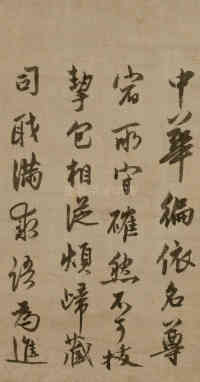 中華徧依名尊
宿所守確然不可拔
挈包相從煩歸藏
司職滿求語為進